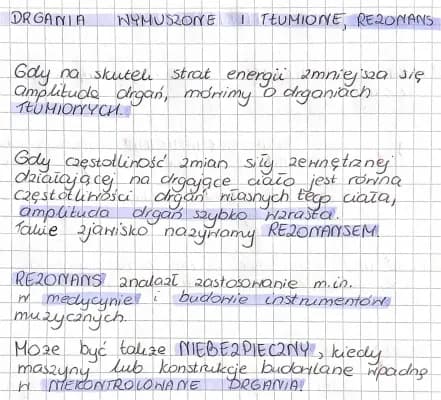 DRGANIA WYMUSZONE I TŁUMIONE, REZONANS
Gdy na skutek strat energii zmniejsza się
amplituda drgań, mówimy o drganiach
TŁUMIONYCH.
Gdy częstotliwość zmian siły zewnętrznej
działającej na drgające ciało jest równa
częstotliwości drgań własnych tego ciała,
amplituda drgań szybko wzrasta.
Takie zjawisko nazywamy REZONANSEM
REZONANS znalazł zastosowanie m.in.
w medycynie i budowie instrumentów
muzycznych.
Może być także NIEBEZPIECZNY, kiedy
maszyny lub konstrukcje budowlane wpadną
w NIEKONTROLOWANE DRGANIA!